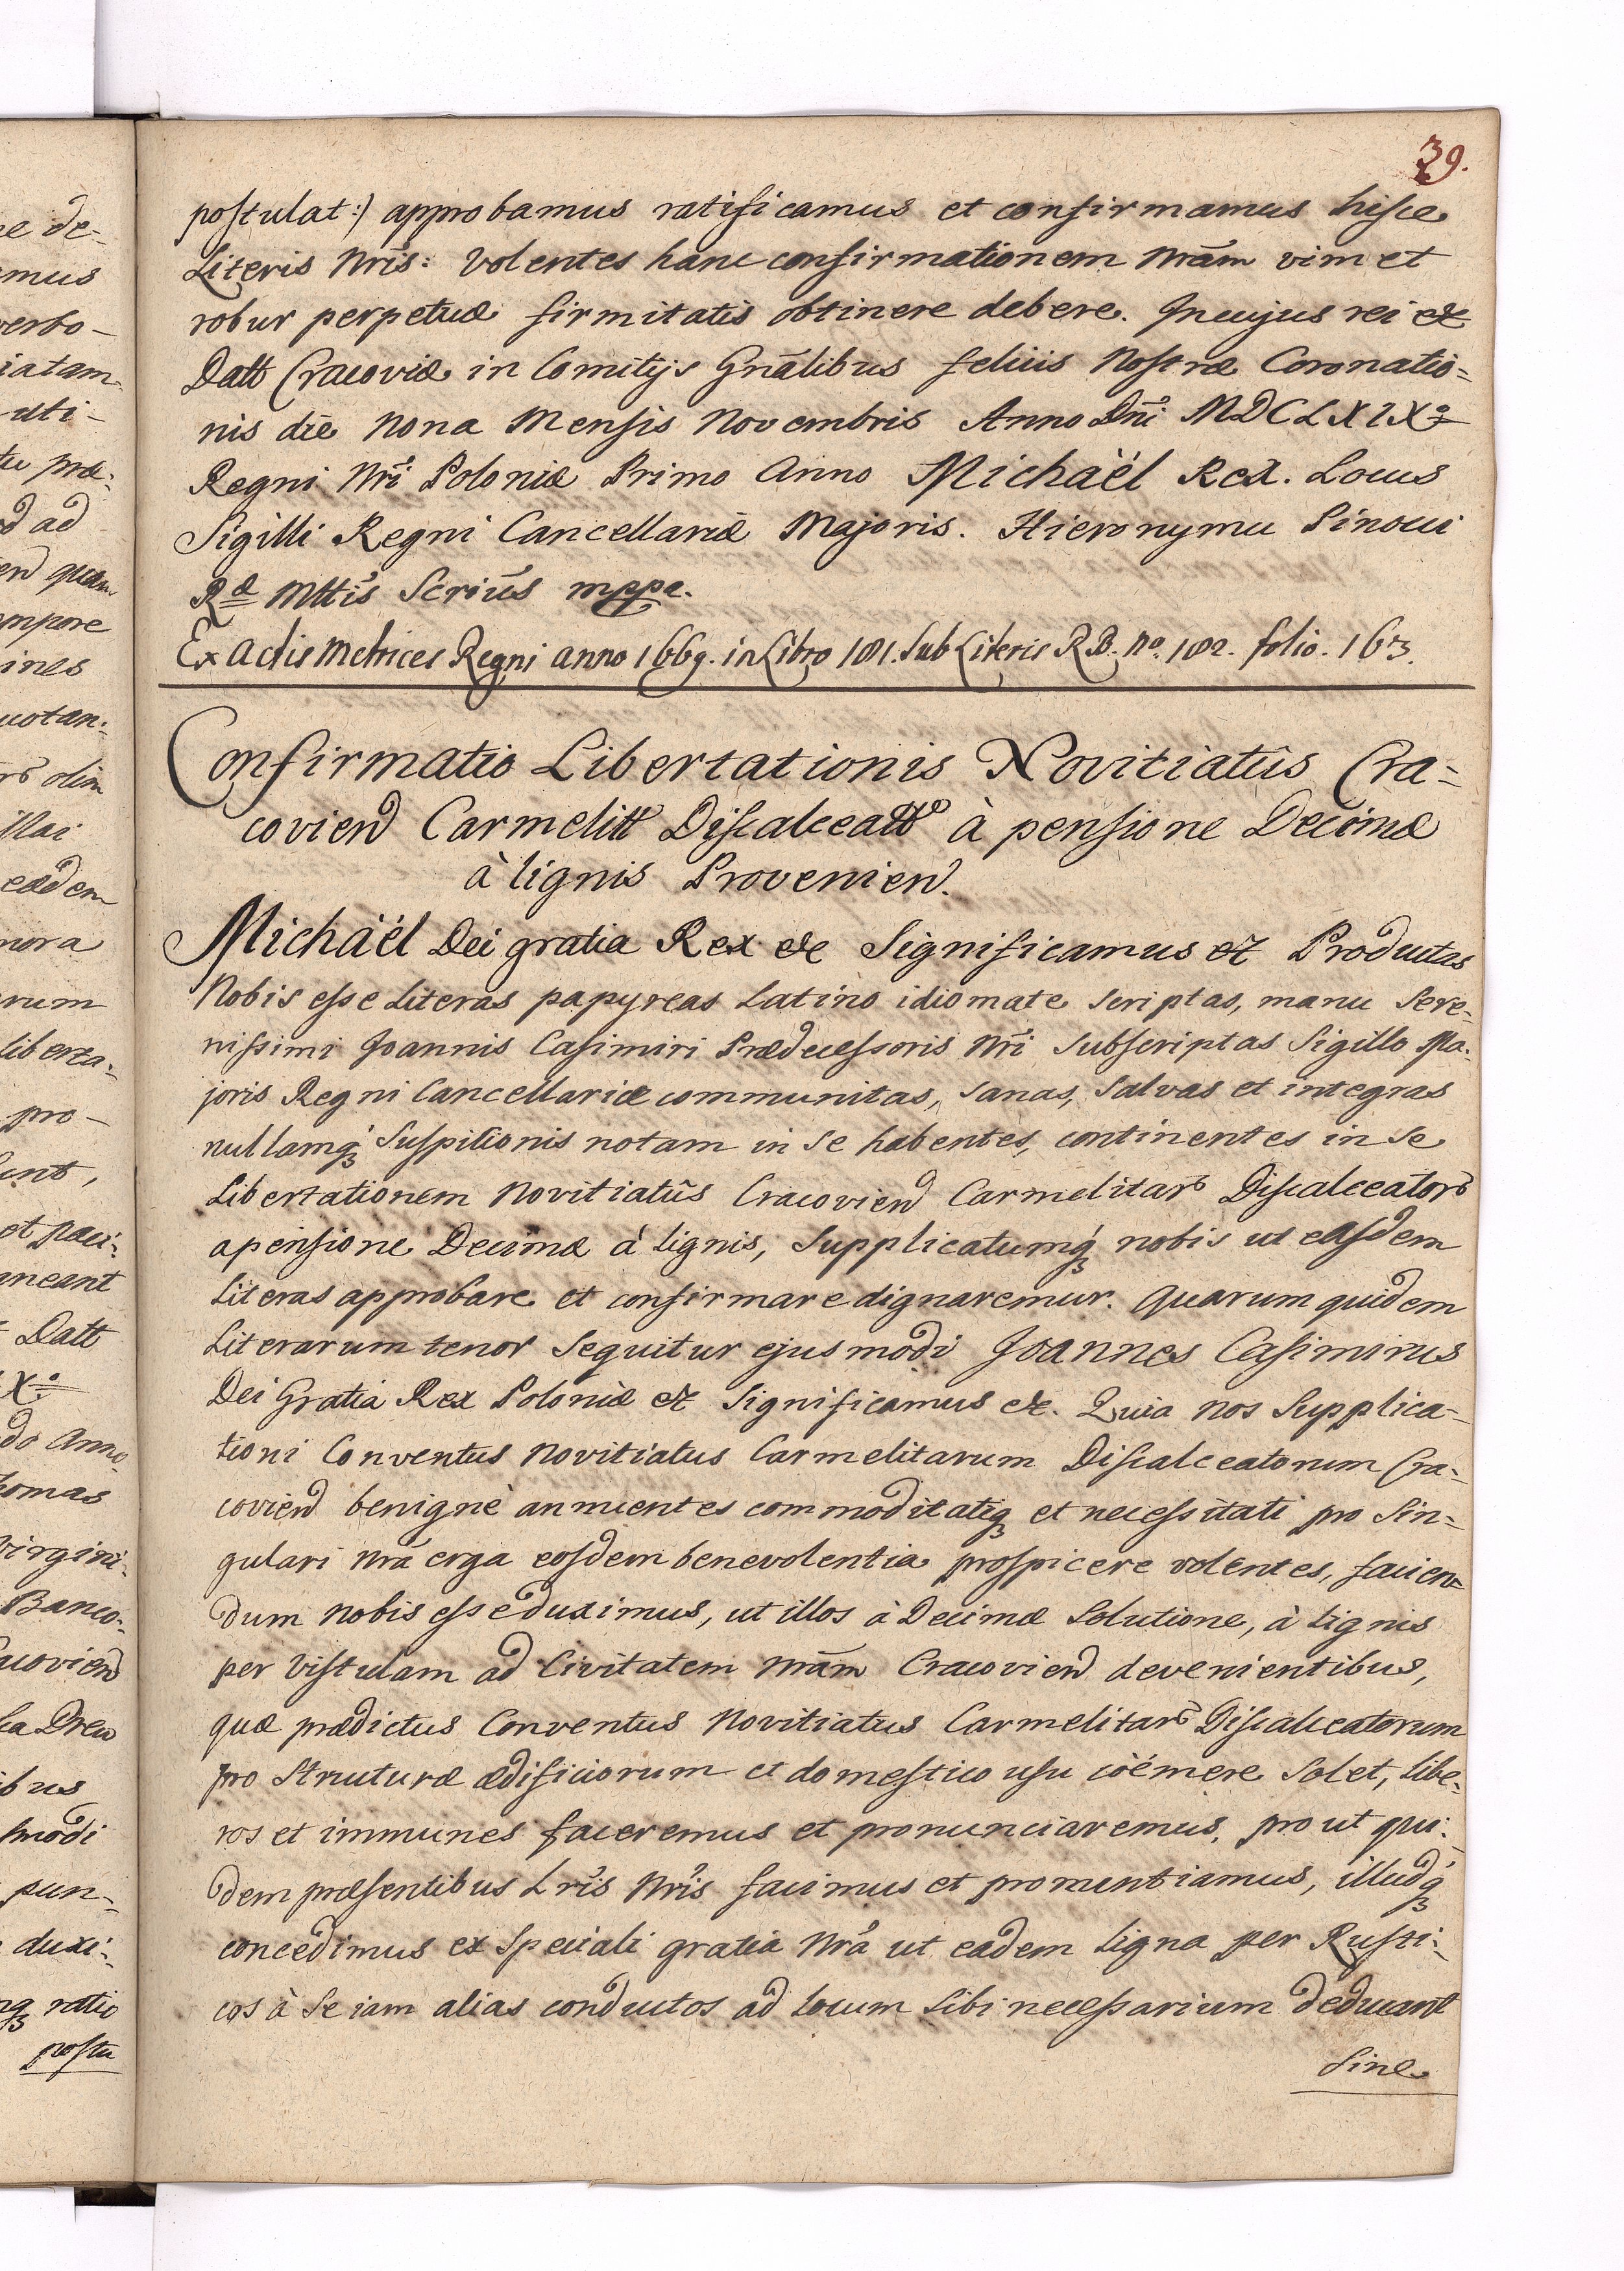 39.
postulat:) approbamus ratificamus et confirmamus hisce
Literis Nrĩs: Volentes hanc confirmationem Nrãm vim et
robur perpetuæ firmitatis obtinere debere. In cujus rei &c
Datt Cracoviæ in Comitijs Gnãlibus felicis Nostræ Coronatio=
nis die Nona Mensis Novembris Anno Dñi MDCLXIXº
Regni Nrĩ Poloniæ Primo Anno Michaël Rex. Locus
Sigilli Regni Cancellariæ Majoris. Hieronymu Pinocci
Ræ Mttis Scrius mppa.
Ex Actis Metrices Regni anno 1669. in Libro 181. sub Literis R.B. No. 182. folio. 163.
Confirmatio Libertationis Novitiatûs Cra=
covien Carmelitt Discalceatt à pensione Decimæ
à lignis Provenien.
Michaël Dei gratia Rex &c Significamus &c Productas
Nobis esse Literas papyreas Latino idiomate scriptas, manu Sere=
nissimi Joannis Casimiri Prædecessoris Nrĩ subscriptas Sigillo Ma=
joris Regni Cancellariæ communitas, sanas, salvas et integras
nullamq; suspitionis notam in se habentes, continentes in se
Libertationem Novitiatûs Cracovien Carmelitar Discalceator
a pensione Decimæ à lignis, supplicatumq; nobis ut easdem
Literas approbare et confirmare dignaremur. Quarum quidem
Literarum tenor sequitur ejusmodi Joannes Casimirus
Dei Gratia Rex Poloniæ &c Significamus &c. Quia nos supplica=
tioni Conventus Novitiatus Carmelitarum Discalceatorum Cra=
covien benignè annuentes commoditatiq; et necessitati pro sin=
gulari nrã erga eosdem benevolentia prospicere volentes, facien=
dum nobis esse duximus, ut illos à Decimæ solutione, à lignis
per Vistulam ad Civitatem Nrãm Cracovien devenientibus,
quæ prædictus Conventus Novitiatus Carmelitar Discalceatorum
pro structuræ ædificiorum et domestico usu coémere solet, libe=
ros et immunes faceremus et pronunciaremus, prout qui=
dem præsentibus Lrĩs Nrĩs facimus et pronuntiamus, illudq;
concedimus ex speciali gratia Nrã ut eadem ligna per Rusti=
cos à se iam alias conductos ad locum sibi necessarium deducant
sine